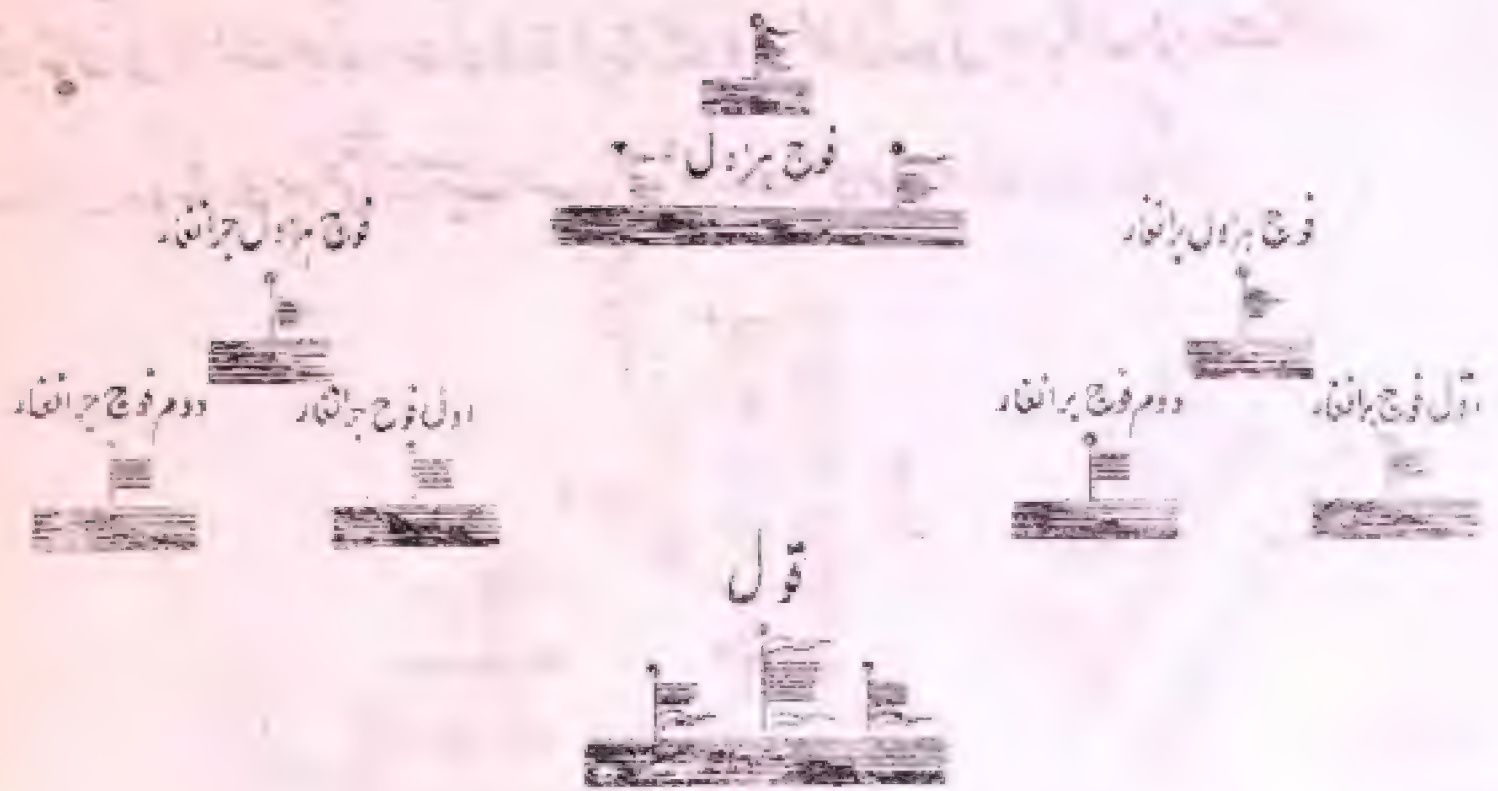 فوج ہراول
فوج ہراول برانغار
فوج ہراول جرانغار
اوّل فوج برانغار
دوم فوج برانغار
اول فوج جرانغار
دوم فوج جرانغار
قول